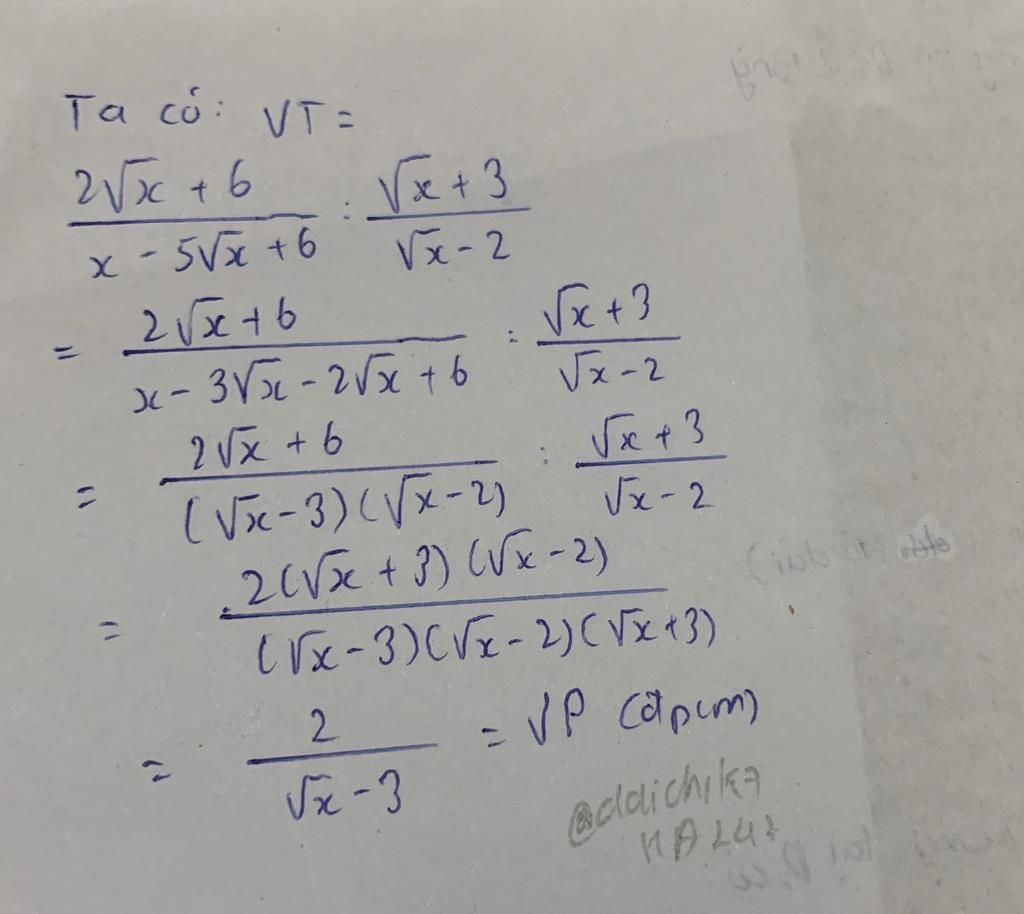 Ta có: VT =
(2√x + 6)/(x - 5√x + 6) : (√x + 3)/(√x - 2)
= (2√x + 6)/(x - 3√x - 2√x + 6) : (√x + 3)/(√x - 2)
= (2√x + 6)/((√x - 3)(√x - 2)) : (√x + 3)/(√x - 2)
= (2(√x + 3)(√x - 2))/((√x - 3)(√x - 2)(√x + 3))
= 2/(√x - 3) = VP (đpcm)